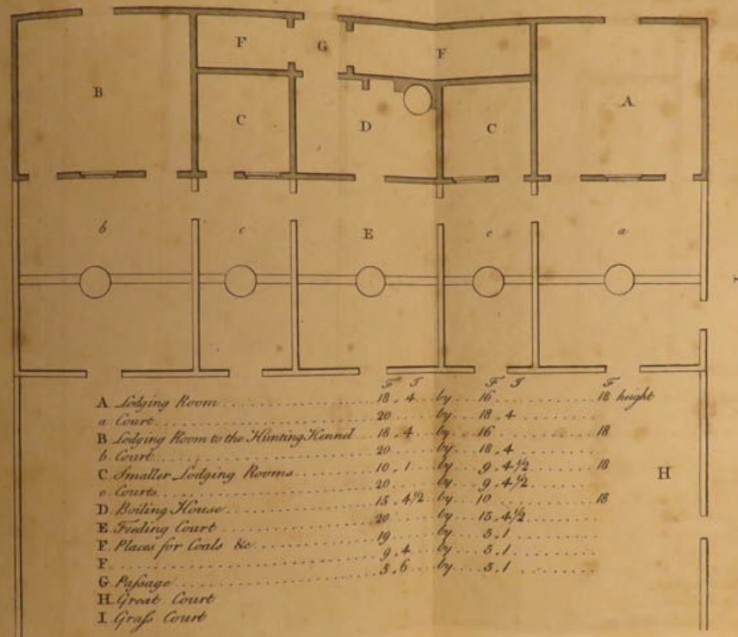 F
G
F
B
A
C
D
C
b
c
E
c
a
F I F I F
A Lodging Room 18 . 4 by 16 18 height
a Court 20 by 18 . 4
B Lodging Room to the Hunting Kennel 18 . 4 by 16 18
b Court 20 by 18 . 4
C Smaller Lodging Rooms 10 . 1 by 9 . 4½ 18
c Courts 20 by 9 . 4½
D Boiling House 15 . 4½ by 10 18
E Feeding Court 20 by 15 . 4½
F Places for Coals &c 19 by 5 . 1
F 9 . 4 by 5 . 1
G Paſsage 5 . 6 by 5 . 1
H Great Court
I Graſs Court
H